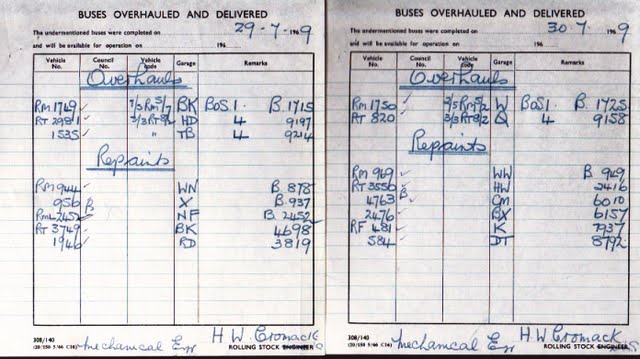 BUSES OVERHAULED AND DELIVERED
The undermentioned buses were completed on 29-7-1969
and will be available for operation on 196
Vehicle No. Council No. Vehicle Code Garage Remarks
Overhauls
RM 1749 ✓ BK BOS 1. B.1715
RT 2981 ✓ HD 4 9197
1535 ✓ " TB 4 9214
Repaints
RM 944 ✓ WN B 878
956 B X B.937
RML 2452 ✓ NF B 2452
RT 3749 ✓ BK 4698
1946 ✓ RD 3819
308/140
Mechanical Egr H.W. Cromack
ROLLING STOCK ENGINEER
BUSES OVERHAULED AND DELIVERED
The undermentioned buses were completed on 30-7 1969
and will be available for operation on 196
Vehicle No. Council No. Vehicle Code Garage Remarks
Overhauls
RM 1750 ✓ W BOS 1. B 1725
RT 820 ✓ Q 4 9158
Repaints
RM 969 ✓ WW B 949
RT 3550 ✓ HW 2416
4763 B CM 6010
2476 ✓ BX 6157
RF 481 ✓ K 7937
584 ✓ DT 8792
308/140
Mechanical Egr H.W. Cromack
ROLLING STOCK ENGINEER